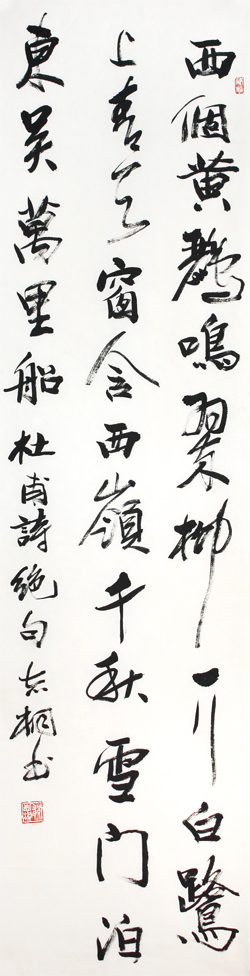 两個黄鸝鳴翠柳一行白鷺
上青天窗含西嶺千秋雪门泊
東吴萬里船 杜甫詩絶句 桐书